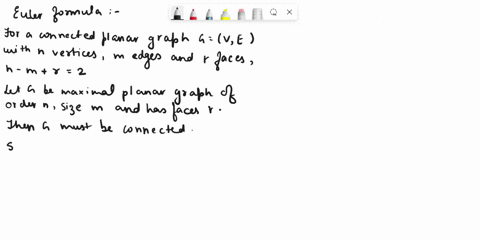 Euler formula :-
For a connected planar graph G = (V, E)
with n vertices, m edges and r faces,
n - m + r = 2
Let G be maximal planar graph of
order n, size m and has faces r.
Then G must be connected.
S